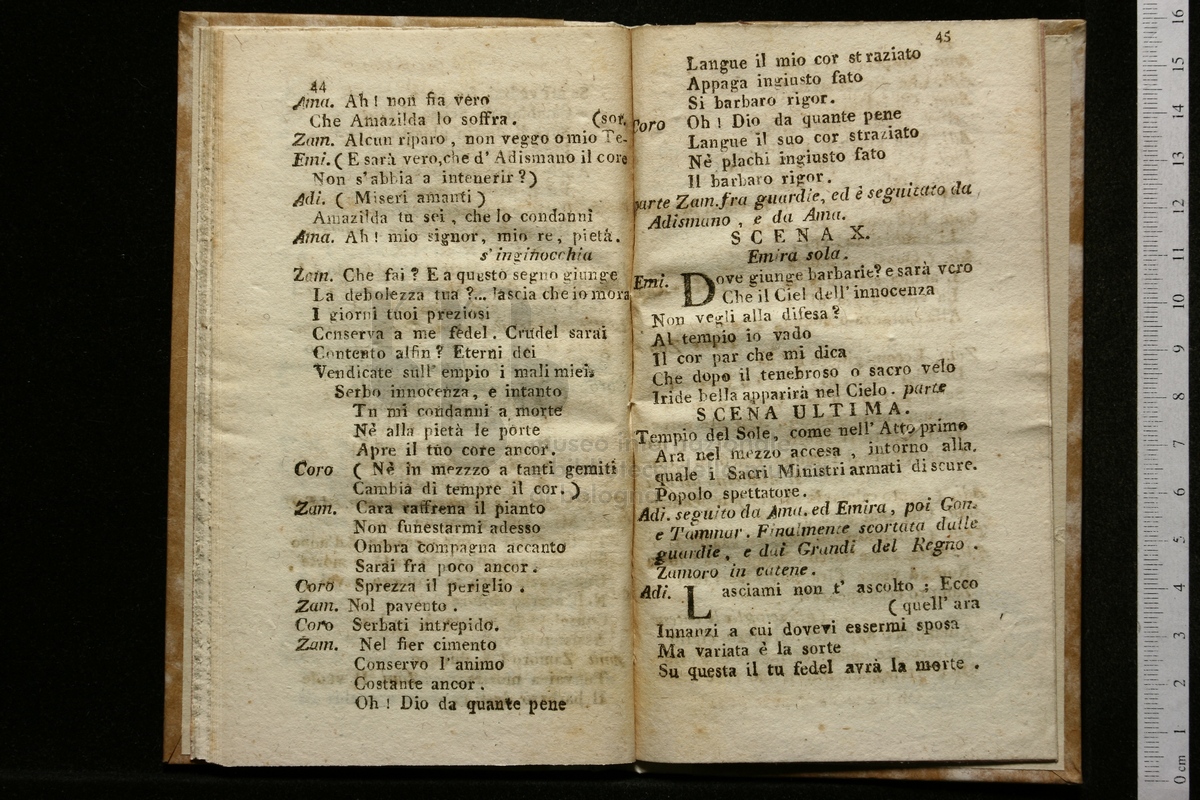 44
Ama. Ah! non fia vero
Che Amazilda lo soffra. (sor.
Zam. Alcun riparo, non veggo o mio Te-
Emi. (E sarà vero, che d' Adismano il core
Non s'abbia a intenerir?)
Adi. (Miseri amanti)
Amazilda tu sei, che lo condanni
Ama. Ah! mio signor, mio re, pietà.
s'inginocchia
Zam. Che fai? E a questo segno giunge
La debolezza tua?... lascia che io mora
I giorni tuoi preziosi
Conserva a me fedel. Crudel sarai
Contento alfin? Eterni dei
Vendicate sull' empio i mali miei.
Serbo innocenza, e intanto
Tu mi condanni a morte
Nè alla pietà le porte
Apre il tuo core ancor.
Coro (Nè in mezzzo a tanti gemiti
Cambia di tempre il cor.)
Zam. Cara raffrena il pianto
Non funestarmi adesso
Ombra compagna accanto
Sarai fra poco ancor.
Coro Sprezza il periglio.
Zam. Nol pavento.
Coro Serbati intrepido.
Zam. Nel fier cimento
Conservo l'animo
Costante ancor.
Oh! Dio da quante pene
45
Langue il mio cor straziato
Appaga ingiusto fato
Si barbaro rigor.
Coro Oh! Dio da quante pene
Langue il suo cor straziato
Nè plachi ingiusto fato
Il barbaro rigor.
parte Zam. fra guardie, ed è seguitato da
Adismano, e da Ama.
SCENA X.
Emira sola.
Emi. Dove giunge barbarie? e sarà vero
Che il Ciel dell' innocenza
Non vegli alla difesa?
Al tempio io vado
Il cor par che mi dica
Che dopo il tenebroso o sacro velo
Iride bella apparirà nel Cielo. parte
SCENA ULTIMA.
Tempio del Sole, come nell' Atto primo
Ara nel mezzo accesa, intorno alla,
quale i Sacri Ministri armati di scure.
Popolo spettatore.
Adi. seguito da Ama. ed Emira, poi Gon.
e Tammar. Finalmente scortata dalle
guardie, e dai Grandi del Regno.
Zamoro in catene.
Adi. Lasciami non t' ascolto; Ecco
(quell' ara
Innanzi a cui dovevi essermi sposa
Ma variata è la sorte
Su questa il tu fedel avrà la morte.